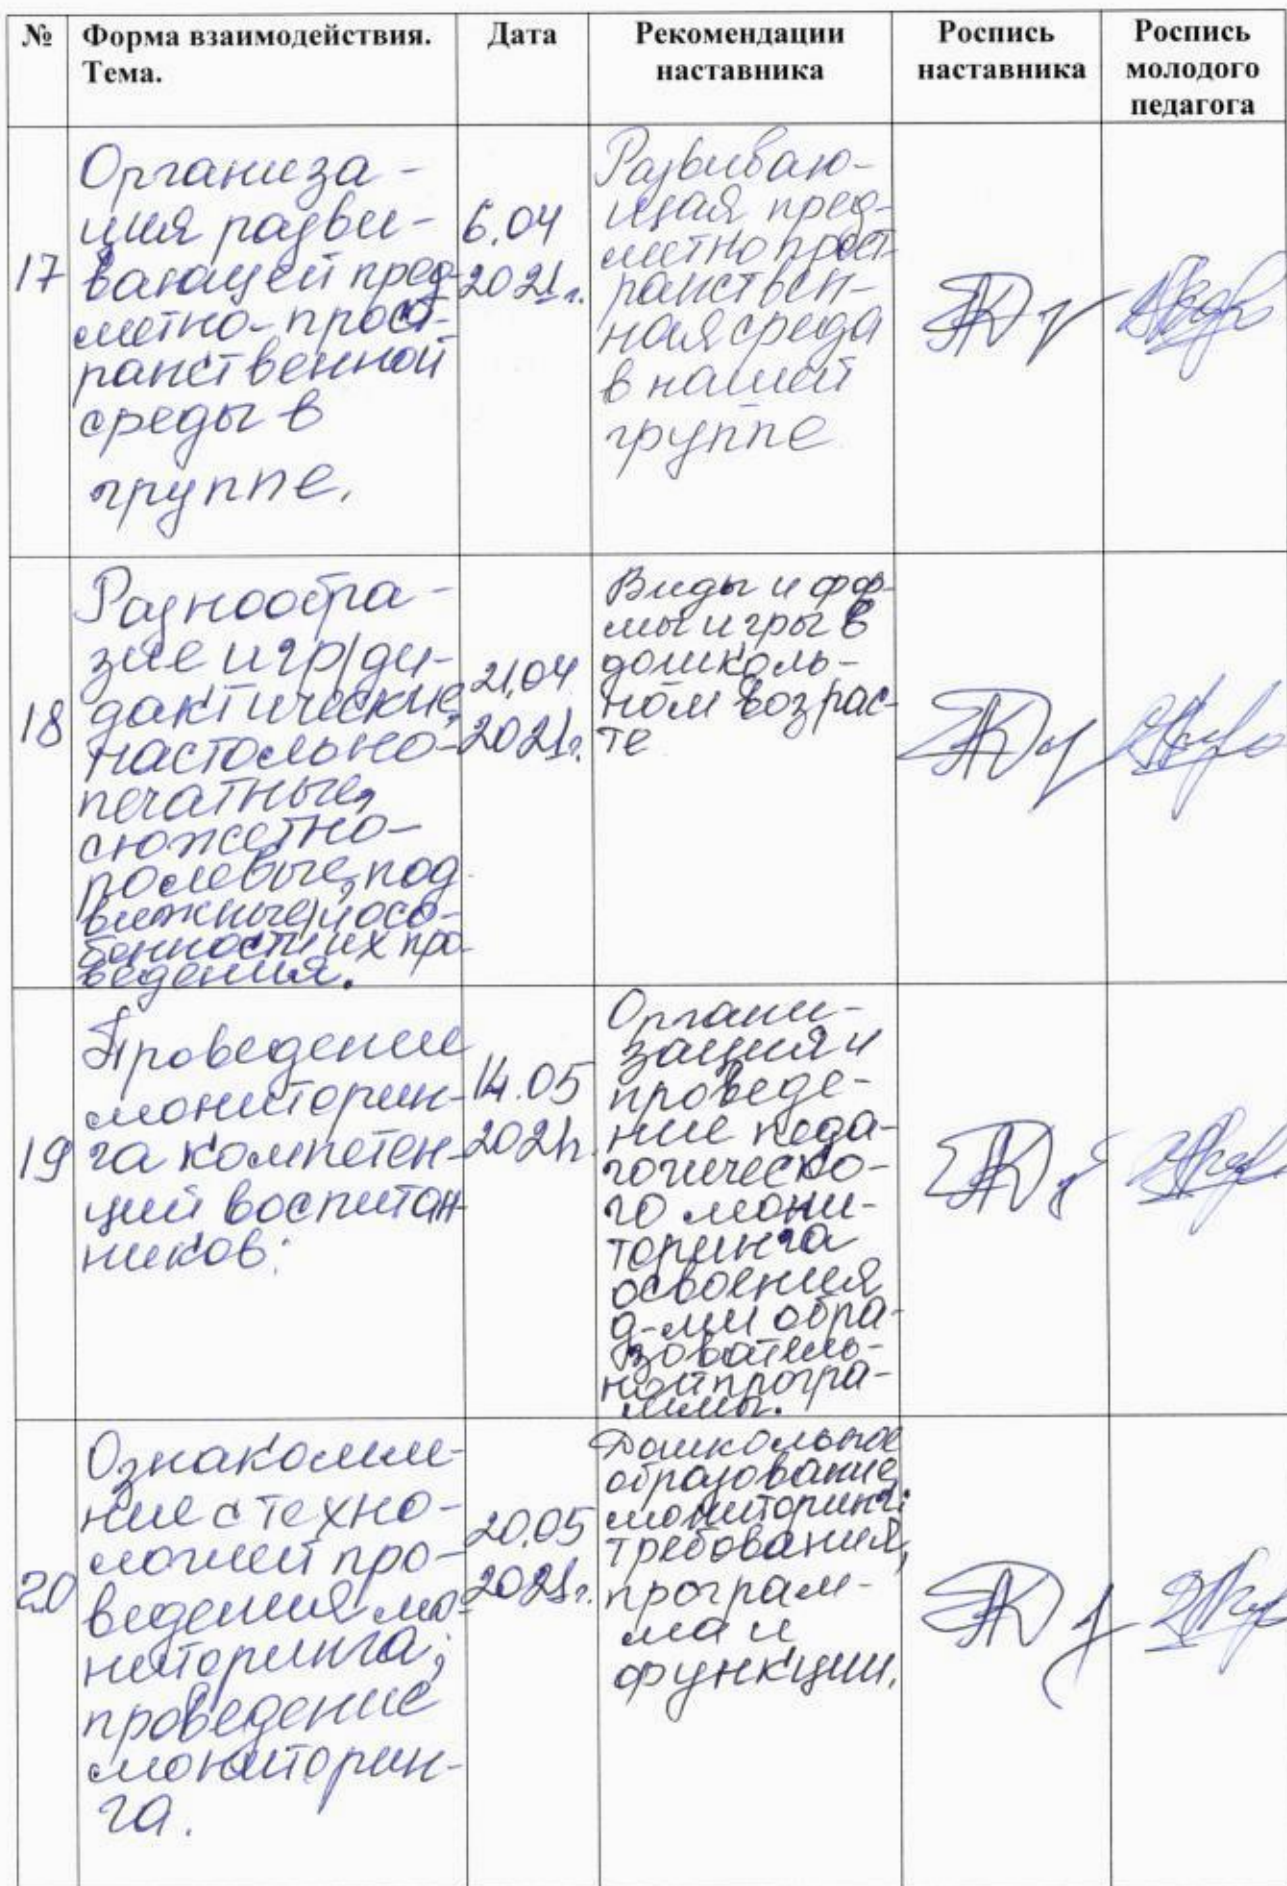 №
Форма взаимодействия.
Тема.
Дата
Рекомендации
наставника
Роспись
наставника
Роспись
молодого
педагога
17
Организа-
ция разви-
вающей пред-
метно-прост-
ранственной
среды в
группе.
6.04
2021г.
Развиваю-
щая пред-
метно прост-
ранствен-
ная среда
в нашей
группе
18
Разнообра-
зие игр(ди-
дактические,
настольно-
печатные,
сюжетно-
ролевые, под-
вижные)и осо-
бенности их про-
ведения.
21.04
2021г.
Виды и фор-
мы игры в
дошколь-
ном возрас-
те
19
Проведение
мониторин-
га компетен-
ций воспитан-
ников;
14.05
2021г.
Органи-
зация и
проведе-
ние педа-
гогическо-
го мони-
торинга
освоения
д-ми обра-
зователь-
ной програ-
ммы.
20
Ознакомле-
ние с техно-
логией про-
ведения мо-
ниторинга;
проведение
мониторин-
га.
20.05
2021г.
Дошкольное
образование,
мониторинг:
требования,
програм-
ма и
функции.